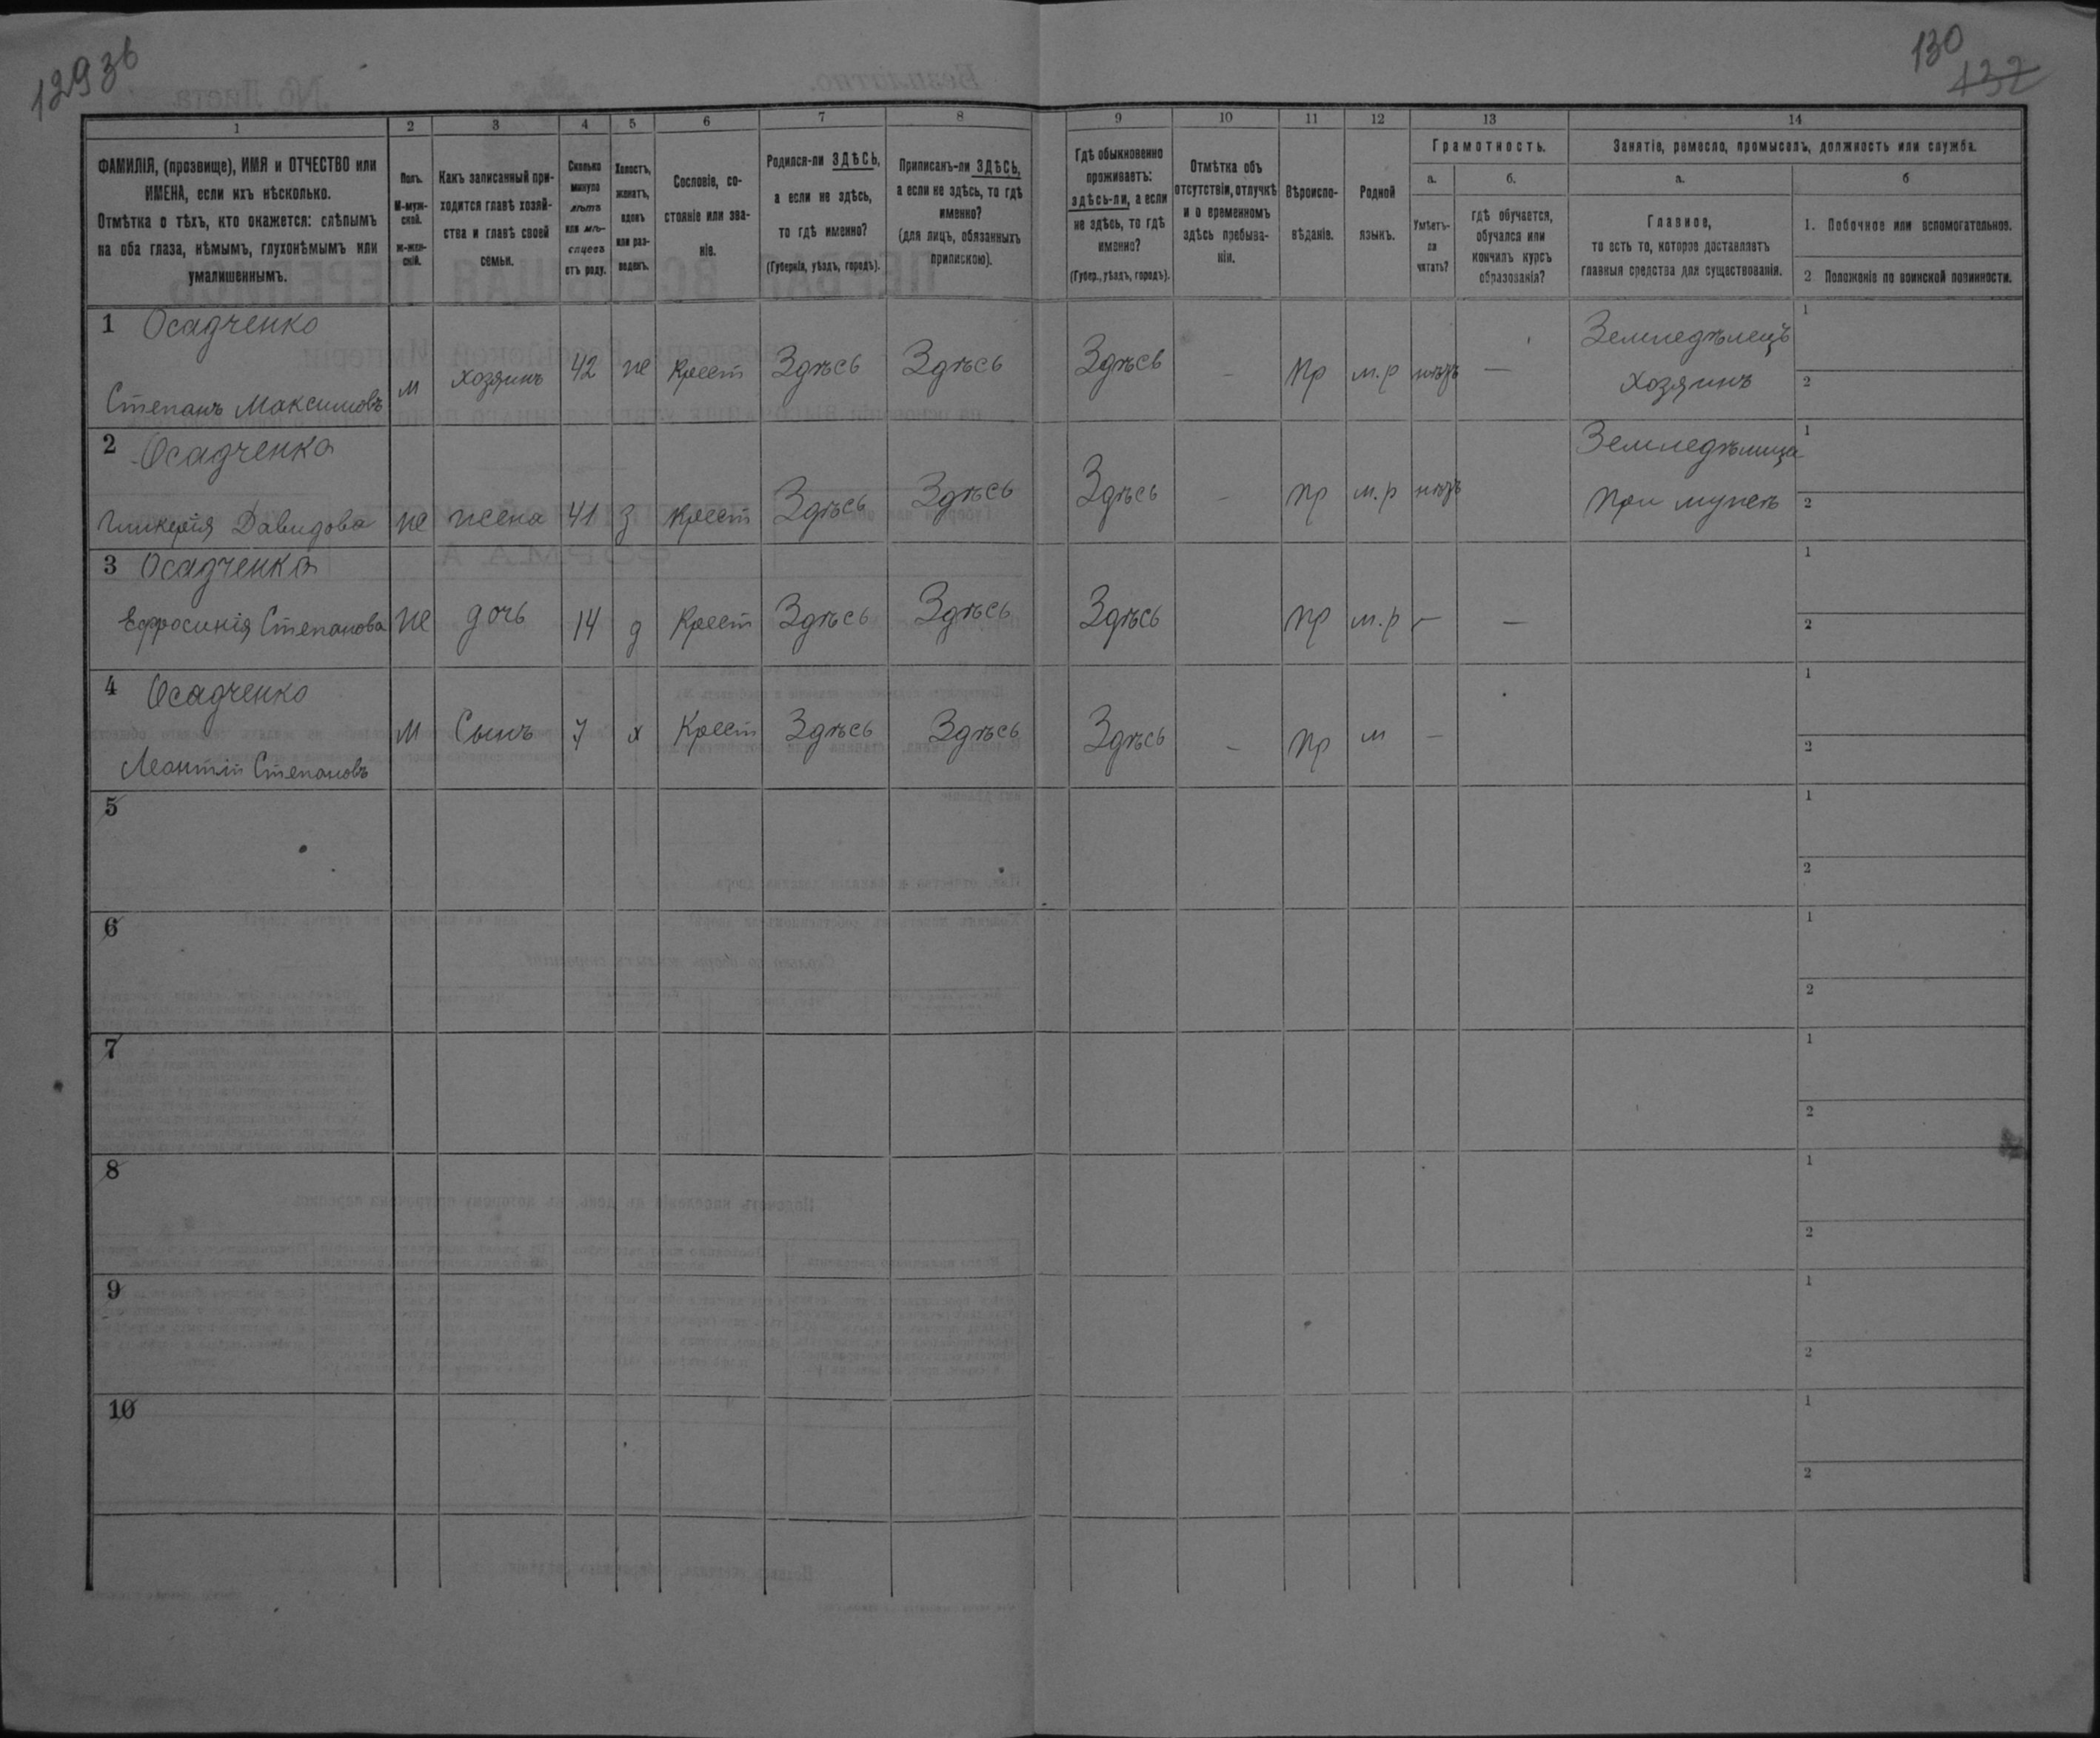 129зв
130
132
1 2 3 4 5 6 7 8 9 10 11 12 13 14
ФАМИЛІЯ, (прозвище), ИМЯ и ОТЧЕСТВО или
ИМЕНА, если ихъ нѣсколько.
Отмѣтка о тѣхъ, кто окажется: слѣпымъ
на оба глаза, нѣмымъ, глухонѣмымъ или
умалишеннымъ.
Полъ.
М-муж-
ской.
ж-жен-
скій.
Какъ записанный при-
ходится главѣ хозяй-
ства и главѣ своей
семьи.
Сколько
минуло
лѣтъ
или мѣ-
сяцевъ
отъ роду.
Холостъ,
женатъ,
вдовъ
или раз-
веденъ.
Сословіе, со-
стояніе или зва-
ніе.
Родился-ли ЗДѢСЬ,
а если не здѣсь,
то гдѣ именно?
(Губернія, уѣздъ, городъ).
Приписанъ-ли ЗДѢСЬ,
а если не здѣсь, то гдѣ
именно?
(для лицъ, обязанныхъ
припискою).
Гдѣ обыкновенно
проживаетъ:
здѣсь-ли, а если
не здѣсь, то гдѣ
именно?
(Губер., уѣздъ, городъ).
Отмѣтка объ
отсутствіи, отлучкѣ
и о временномъ
здѣсь пребыва-
ніи.
Вѣроиспо-
вѣданіе.
Родной
языкъ.
Грамотность.
а.
Умѣетъ-
ли
читать?
б.
гдѣ обучается,
обучался или
кончилъ курсъ
образованія?
Занятіе, ремесло, промыселъ, должность или служба.
а.
Главное,
то есть то, которое доставляетъ
главныя средства для существованія.
б
1. Побочное или вспомогательное.
2 Положеніе по воинской повинности.
1 Осадченко
Степанъ Максимовъ м хозяинъ 42 же Крест Здѣсь Здѣсь Здѣсь – Пр м.р нѣтъ — Земледѣлецъ
хозяинъ
1
2
2 Осадченка
Гликерія Давидова же жена 41 з Крест Здѣсь Здѣсь Здѣсь – Пр м.р нѣтъ Земледѣлица
При мужѣ
1
2
3 Осадченка
Ефросинія Степанова же дочь 14 д Крест Здѣсь Здѣсь Здѣсь Пр м.р — —
1
2
4 Осадченко
Леонтій Степановъ м Сынъ 7 х Крест Здѣсь Здѣсь Здѣсь – Пр м –
1
2
5
1
2
6
1
2
7
1
2
8
1
2
9
1
2
10
1
2